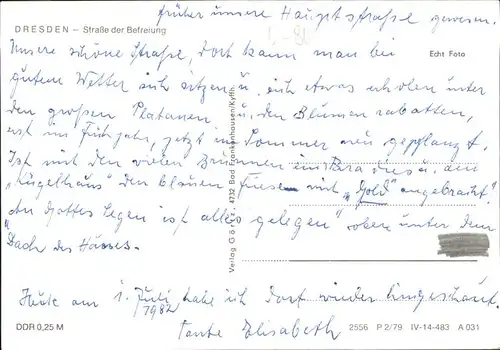 früher unsere Hauptstraße gewesen.
DRESDEN – Straße der Befreiung
Unsere schöne Straße, dort kann man bei
Echt Foto
gutem Wetter sich sitzen u. sich etwas erholen unter
den großen Platanen u. den Blumenrabatten,
erst im Frühjahr, jetzt im Sommer neu gepflanzt.
Ist mit den vielen Brunnen ein Paradies u. am
"Kügelhaus" den blauen mit "Gold" angebracht.
"An Gottes Segen ist alles gelegen" oben unter dem
Dach des Hauses.
Heute am 1. Juli habe ich dort wieder hingeschaut.
1982
Tante Elisabeth
Verlag Görtz, 4732 Bad Frankenhausen/Kyffh.
DDR 0,25 M
2556 P 2/79 IV-14-483 A 031